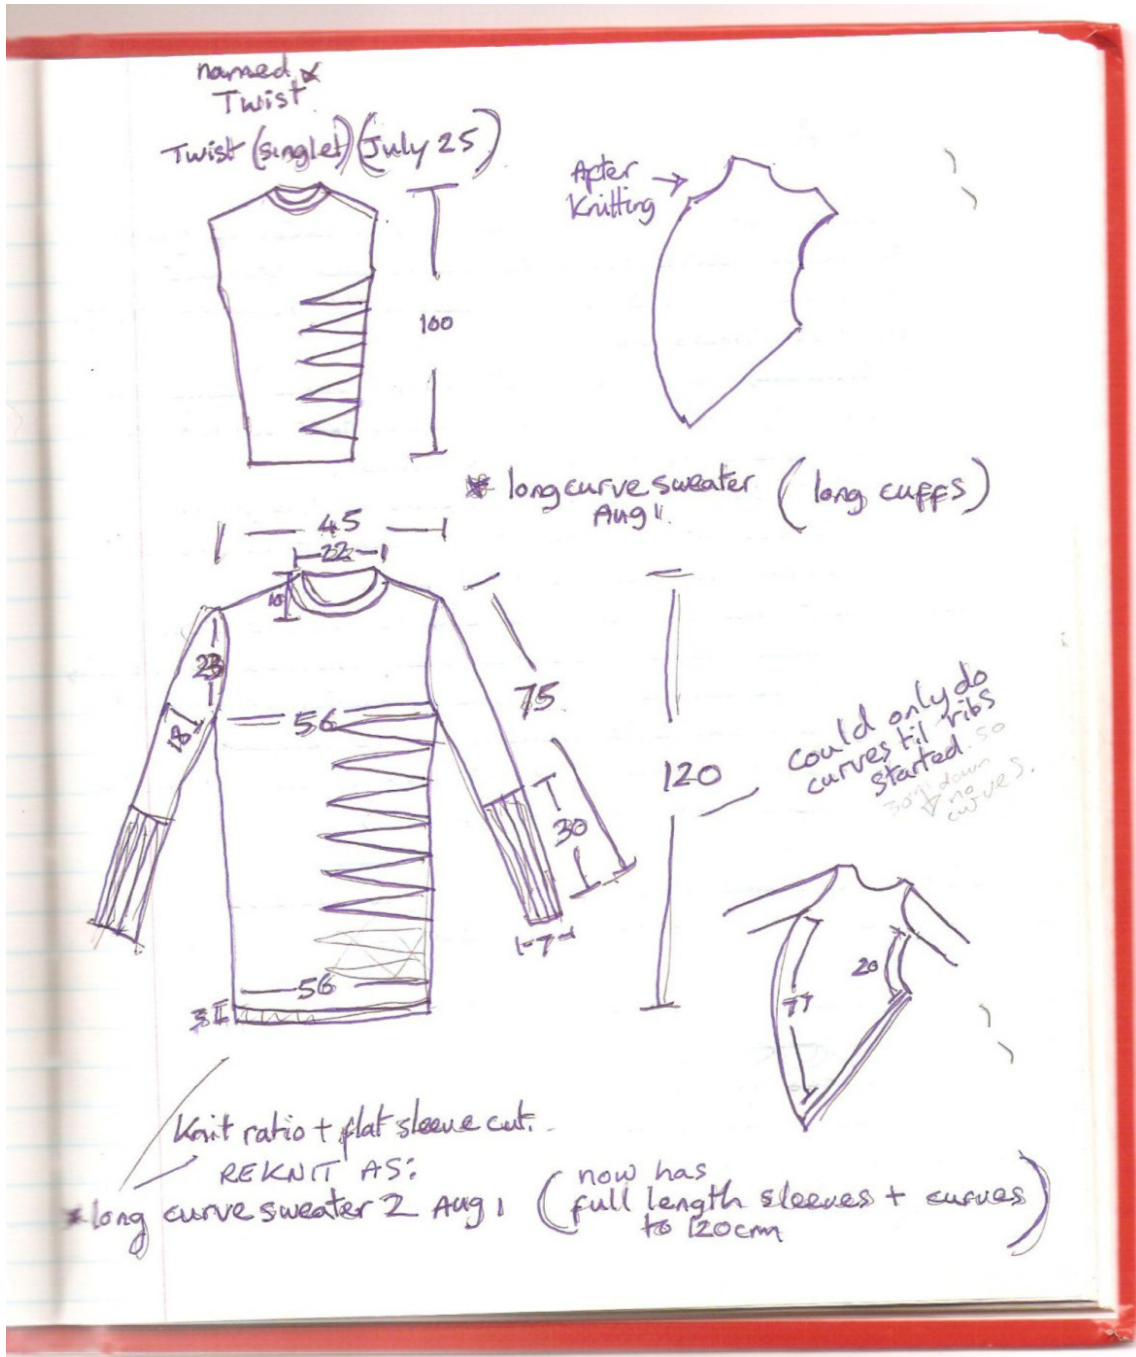 named
Twist
Twist (singlet) (July 25)
After
Knitting
100
* long curve sweater (long cuffs)
Aug 1.
45
22
10
23
18
56
75
30
7
120
could only do
curves til ribs
started. so
30cm down
no
curves.
56
3
20
77
Knit ratio + flat sleeve cut.
REKNIT AS:
* long curve sweater 2 Aug 1 (now has
full length sleeves + curves
to 120cm)